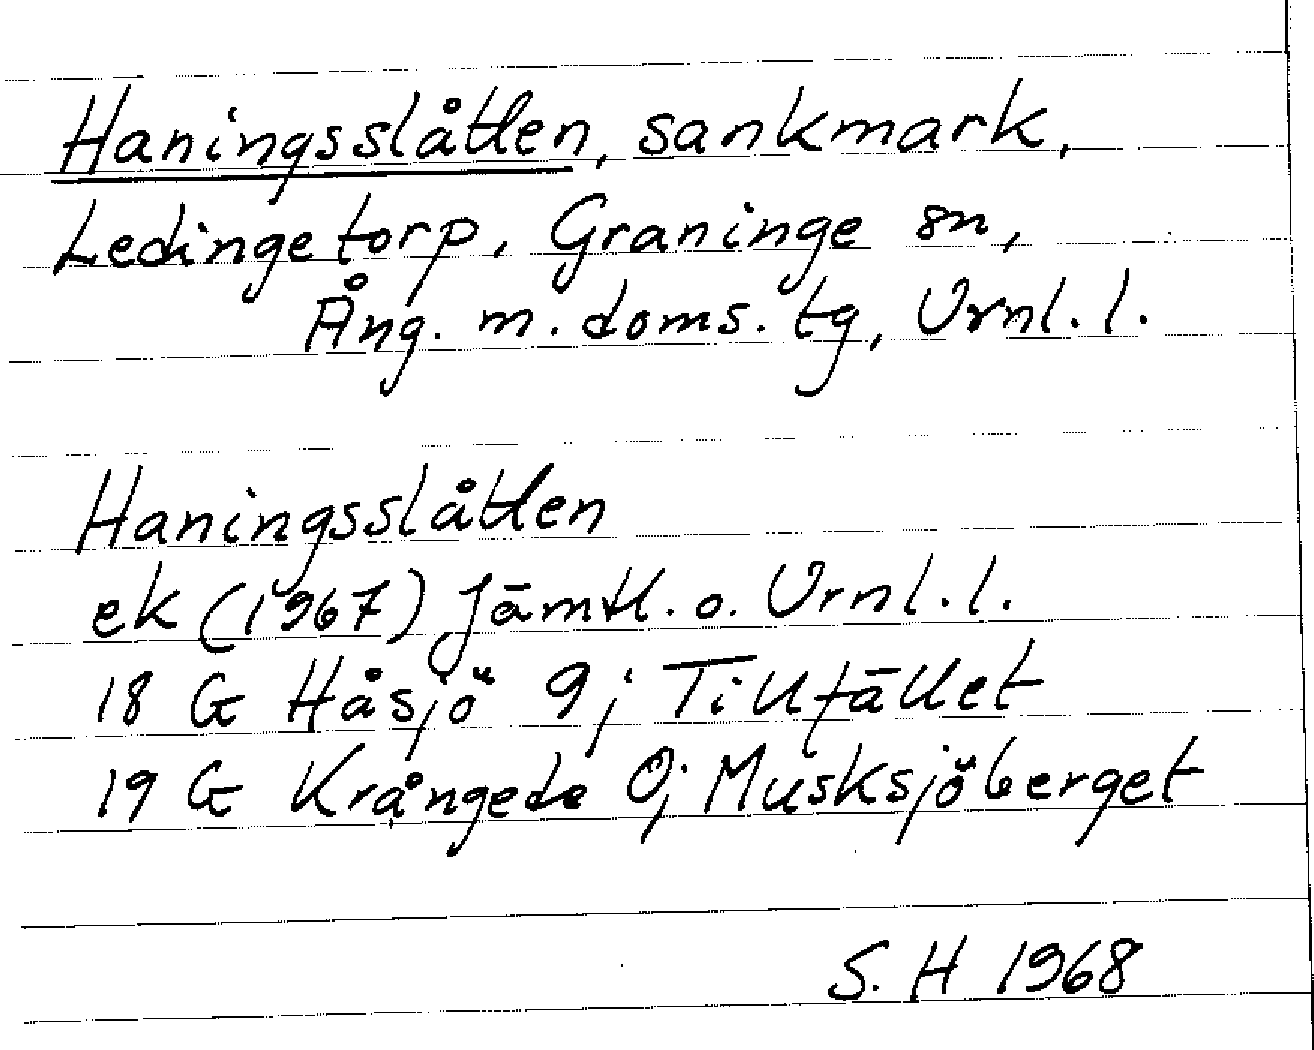 Haningsslåtten, sankmark,
Ledingetorp, Graninge sn,
Ång. m. doms. tg, Vrnl. l.
Haningsslåtten
ek (1967) Jämtl. o. Vrnl. l.
18 G Håsjö 9j Tillfället
19 G Krångede 0j Musksjöberget
S. H 1968